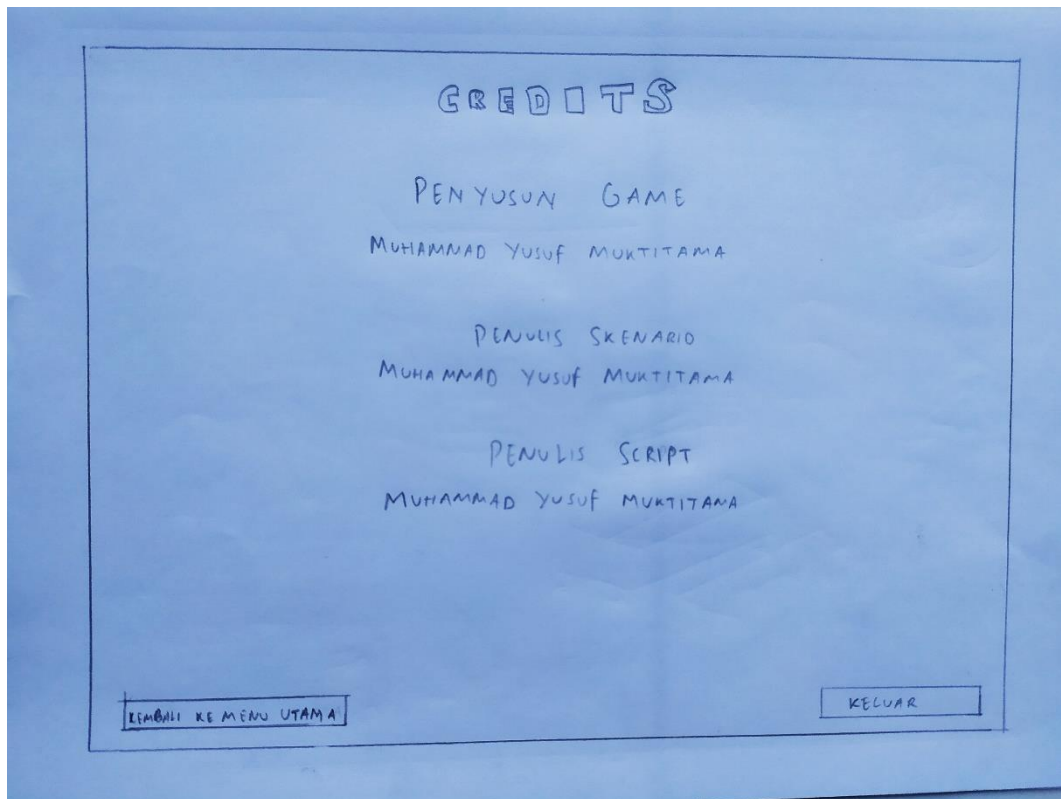 CREDITS
PENYUSUN GAME
MUHAMMAD YUSUF MUKTITAMA
PENULIS SKENARIO
MUHAMMAD YUSUF MUKTITAMA
PENULIS SCRIPT
MUHAMMAD YUSUF MUKTITAMA
KEMBALI KE MENU UTAMA
KELUAR